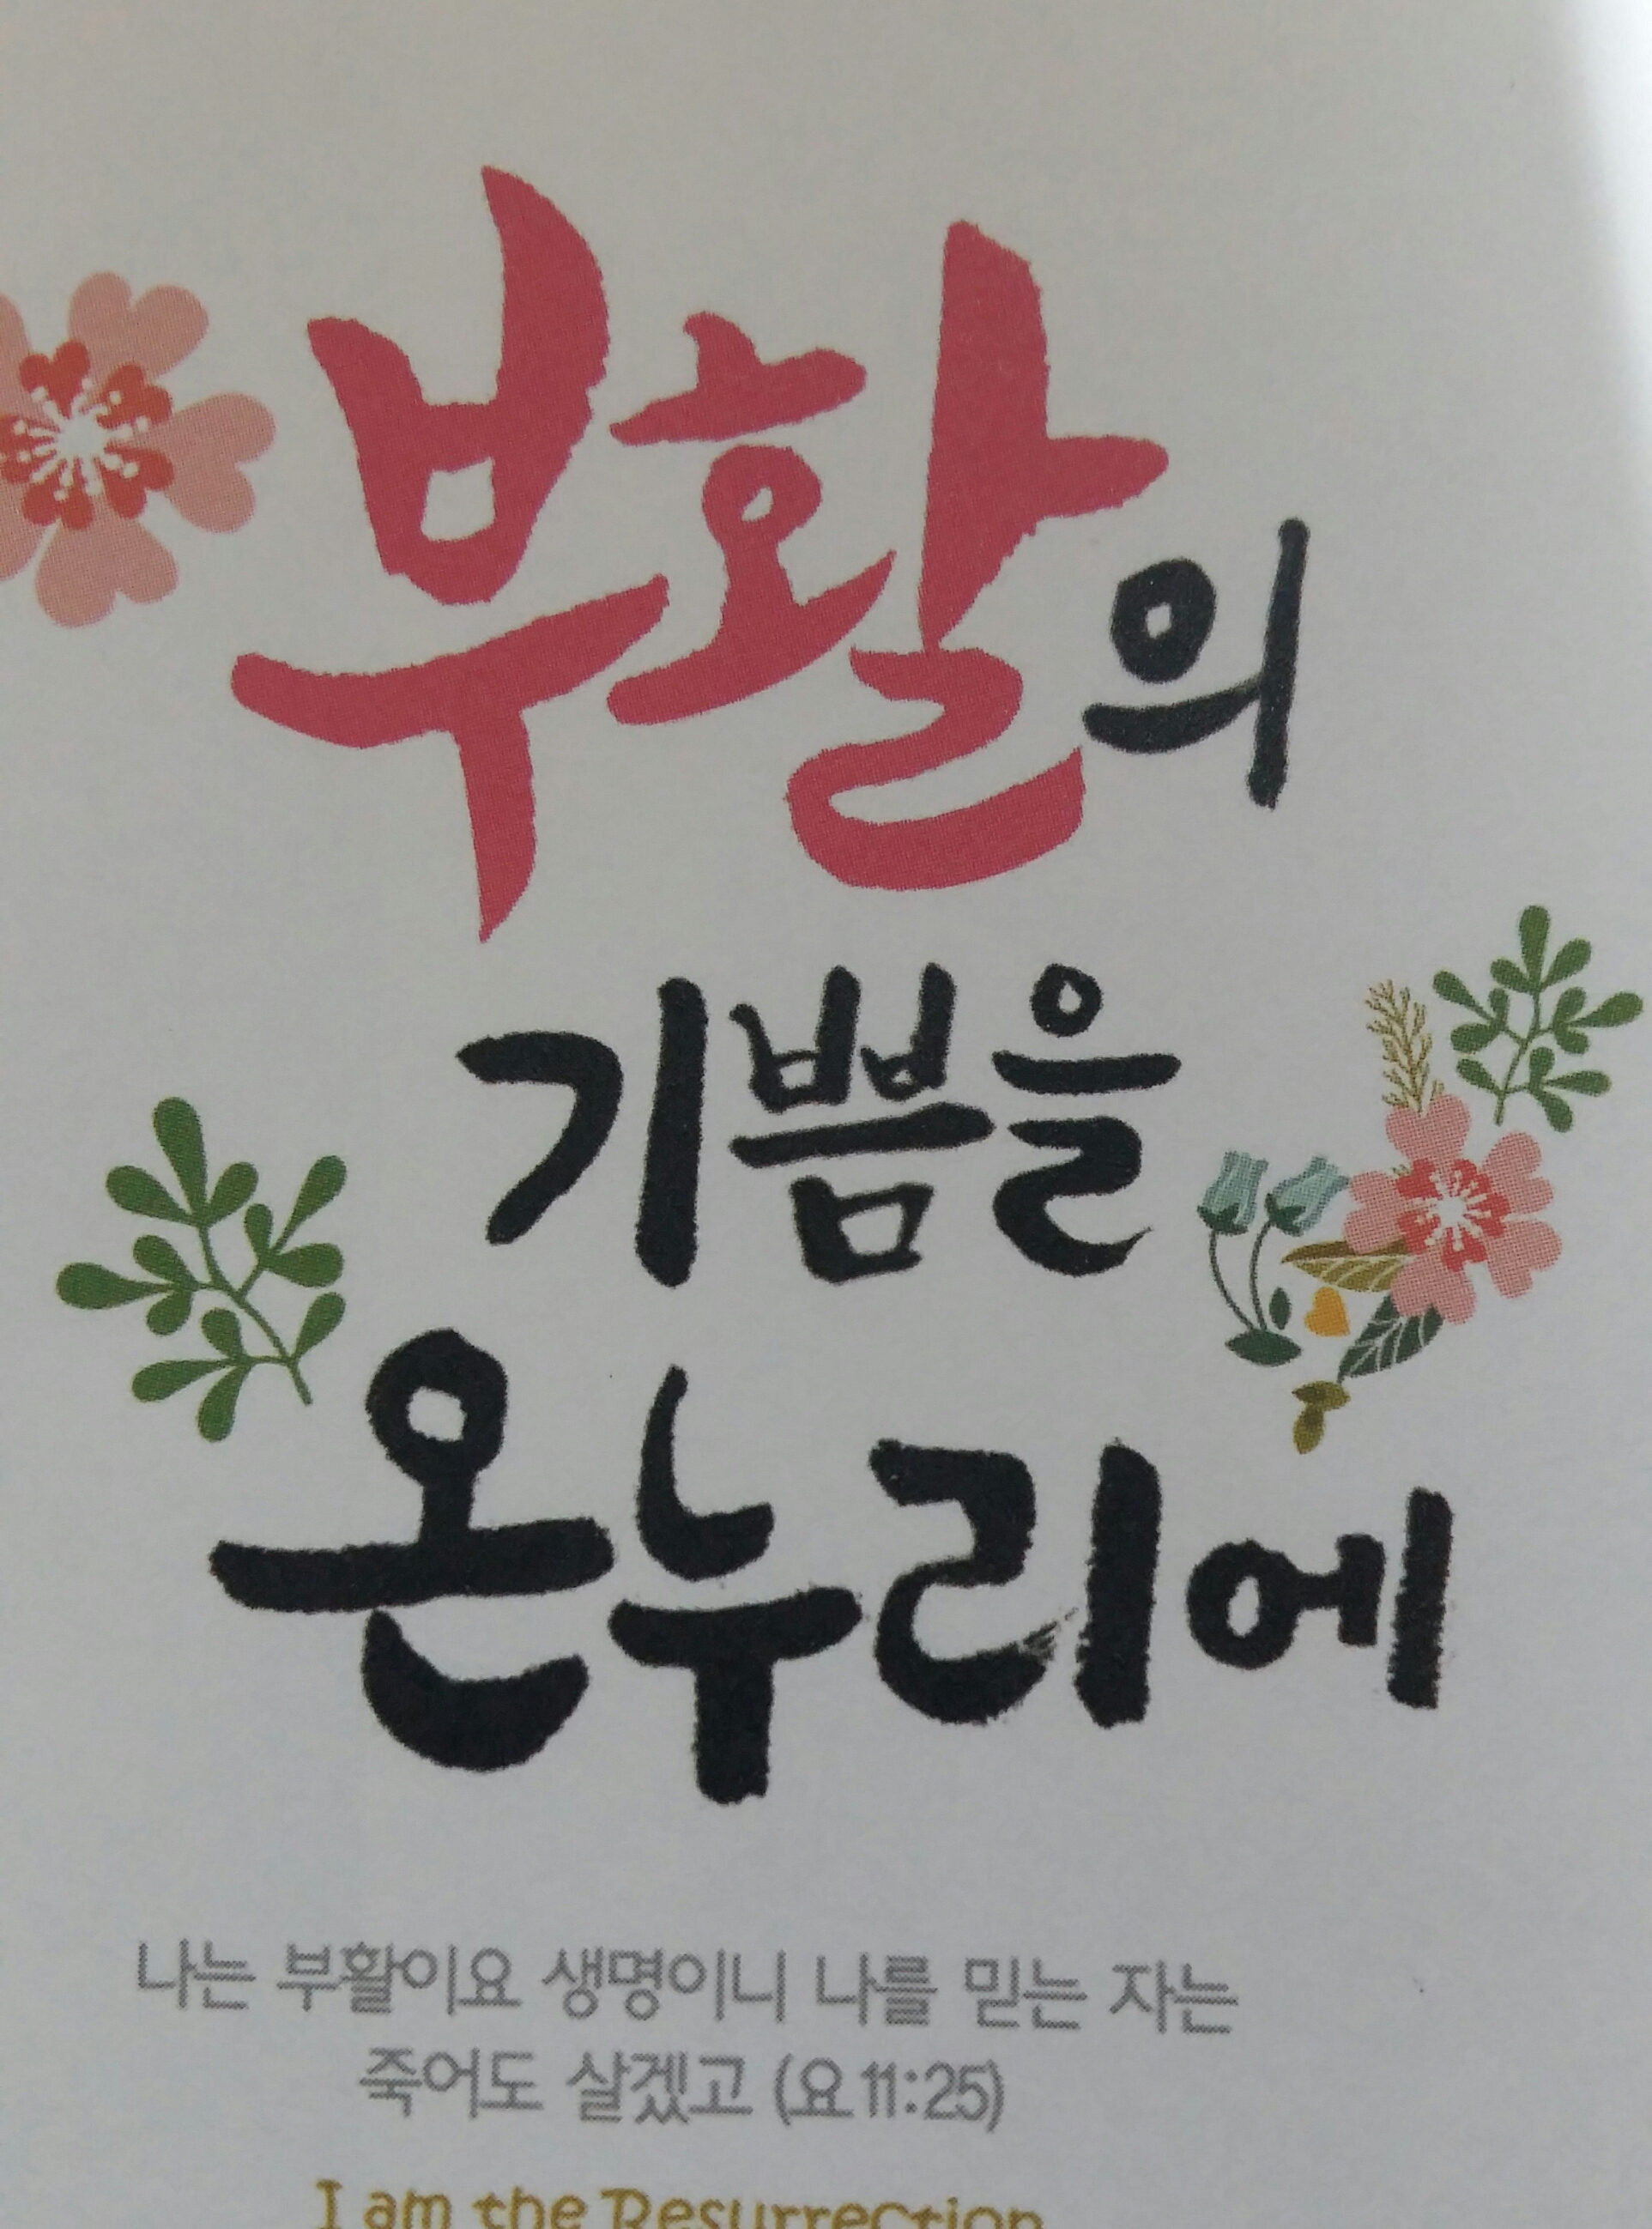 부활의
기쁨을
온누리에
나는 부활이요 생명이니 나를 믿는 자는
죽어도 살겠고 (요 11:25)
I am the Resurrection